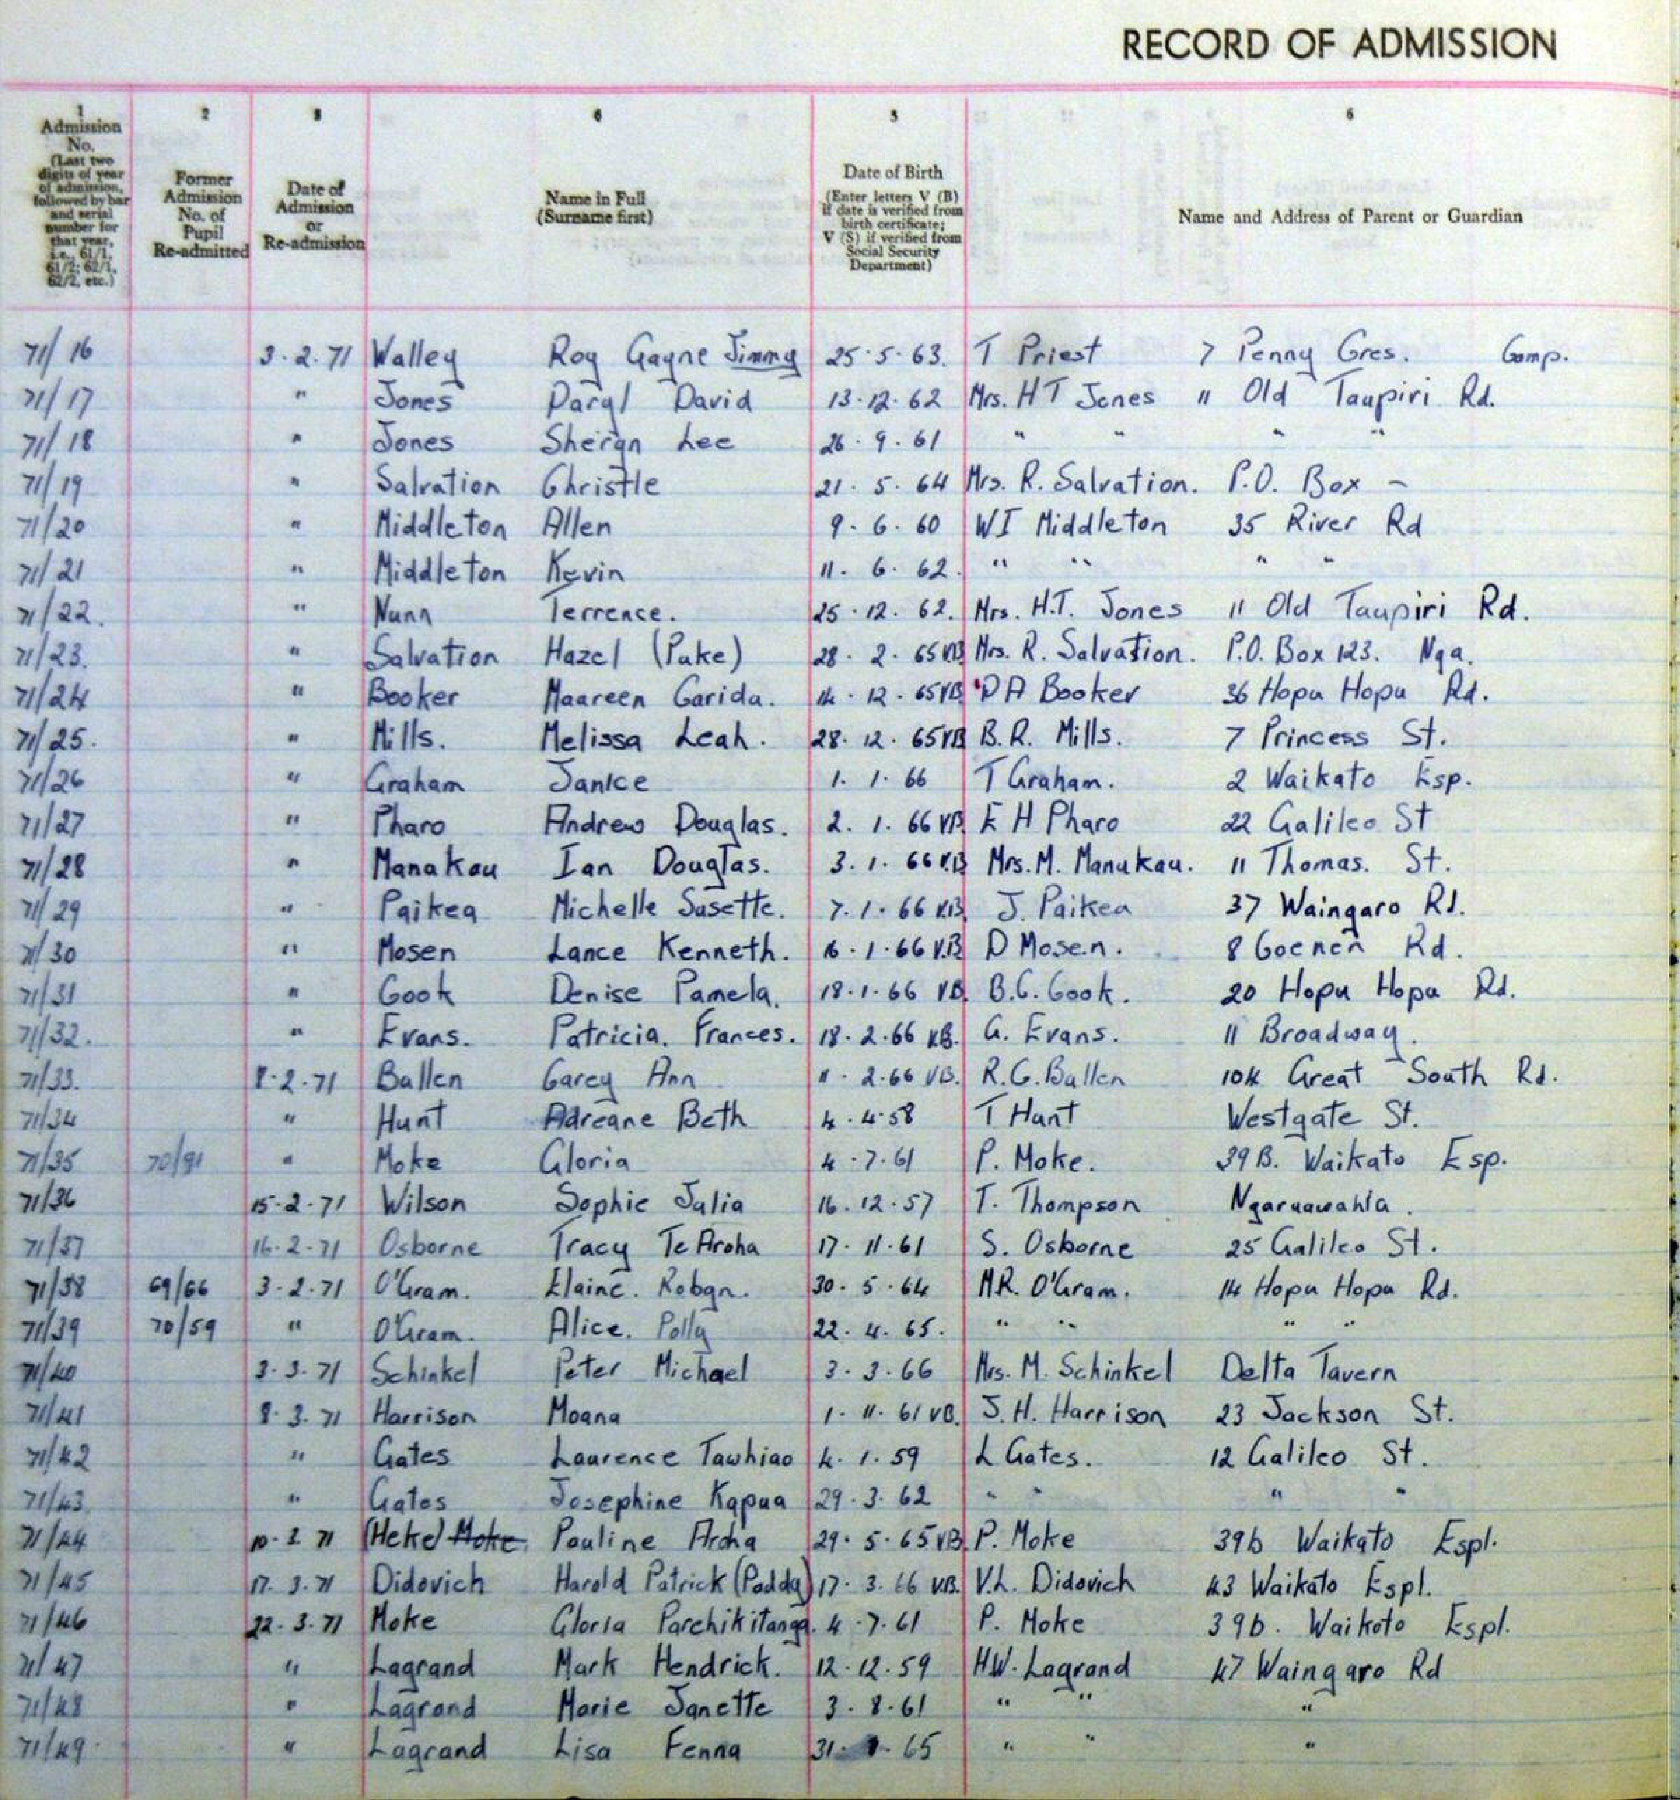 RECORD OF ADMISSION
1 2 3 4 5 6
Admission No. (Last two digits of year of admission, followed by bar and serial number for that year, i.e., 61/1, 61/2; 62/1, 62/2, etc.)
Former Admission No. of Pupil Re-admitted
Date of Admission or Re-admission
Name in Full (Surname first)
Date of Birth (Enter letters V (B) if date is verified from birth certificate; V (S) if verified from Social Security Department)
Name and Address of Parent or Guardian
71/16 3.2.71 Walley Roy Gayne Jimmy 25.5.63. T Priest 7 Penny Cres. Comp.
71/17 " Jones Daryl David 13.12.62 Mrs. H T Jones 11 Old Taupiri Rd.
71/18 " Jones Sheryn Lee 26.9.61 " " " "
71/19 " Salvation Christle 21.5.64 Mrs. R. Salvation. P.O. Box –
71/20 " Middleton Allen 9.6.60 WI Middleton 35 River Rd
71/21 " Middleton Kevin 11.6.62. " " " "
71/22. " Nunn Terrence. 25.12.62. Mrs. H.T. Jones 11 Old Taupiri Rd.
71/23. " Salvation Hazel (Puke) 28.2.65 VB Mrs. R. Salvation. P.O. Box 123. Nga.
71/24 " Booker Maureen Carida. 14.12.65 VB D A Booker 36 Hopu Hopu Rd.
71/25. " Mills. Melissa Leah. 28.12.65 VB B.R. Mills. 7 Princess St.
71/26 " Graham Janice 1.1.66 T Graham. 2 Waikato Esp.
71/27 " Pharo Andrew Douglas. 2.1.66 VB. E H Pharo 22 Galileo St
71/28 " Manakau Ian Douglas. 3.1.66 V.B Mrs. M. Manukau. 11 Thomas. St.
71/29 " Paikea Michelle Susette. 7.1.66 V.B. J. Paikea 37 Waingaro Rd.
71/30 " Mosen Lance Kenneth. 16.1.66 V.B D Mosen. 8 Goenen Rd.
71/31 " Cook Denise Pamela. 18.1.66 V.B. B.C. Cook. 20 Hopu Hopu Rd.
71/32. " Evans. Patricia. Frances. 18.2.66 VB. G. Evans. 11 Broadway.
71/33. 8.2.71 Bullen Carey Ann 11.2.66 VB. R.G. Bullen 104 Great South Rd.
71/34 " Hunt Adreane Beth 4.4.58 T Hunt Westgate St.
71/35 70/91 " Moke Gloria 4.7.61 P. Moke. 39B. Waikato Esp.
71/36 15.2.71 Wilson Sophie Julia 16.12.57 T. Thompson Ngaruawahia.
71/37 16.2.71 Osborne Tracy Te Aroha 17.11.61 S. Osborne 25 Galileo St.
71/38 69/66 3.2.71 O'Gram. Elaine. Robyn. 30.5.64 M.R. O'Gram. 14 Hopu Hopu Rd.
71/39 70/59 " O'Gram. Alice. Polly 22.4.65. " " " "
71/40 3.3.71 Schinkel Peter Michael 3.3.66 Mrs. M. Schinkel Delta Tavern
71/41 8.3.71 Harrison Moana 1.11.61 VB. J.H. Harrison 23 Jackson St.
71/42 " Gates Laurence Tawhiao 4.1.59 L Gates. 12 Galileo St.
71/43. " Gates Josephine Kapua 29.3.62 " " " "
71/44 10.3.71 (Heke) Moke Pauline Aroha 29.5.65 VB. P. Moke 39b Waikato Espl.
71/45 17.3.71 Didovich Harold Patrick (Paddy) 17.3.66 V.B. V.L. Didovich 43 Waikato Espl.
71/46 22.3.71 Moke Gloria Parehikitanga. 4.7.61 P. Moke 39b. Waikato Espl.
71/47 " Lagrand Mark Hendrick. 12.12.59 H.W. Lagrand 47 Waingaro Rd
71/48 " Lagrand Marie Janette 3.8.61 " " "
71/49. " Lagrand Lisa Fenna 31. 65 " " "